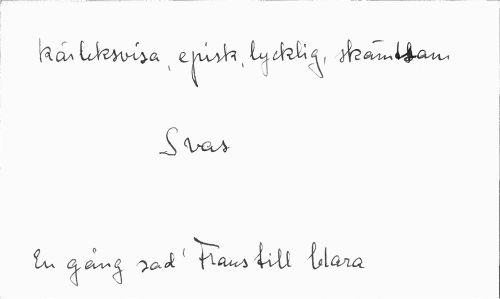 kärleksvisa, episk, lycklig, skämtsam
Svas
En gång sad' Frans till Clara